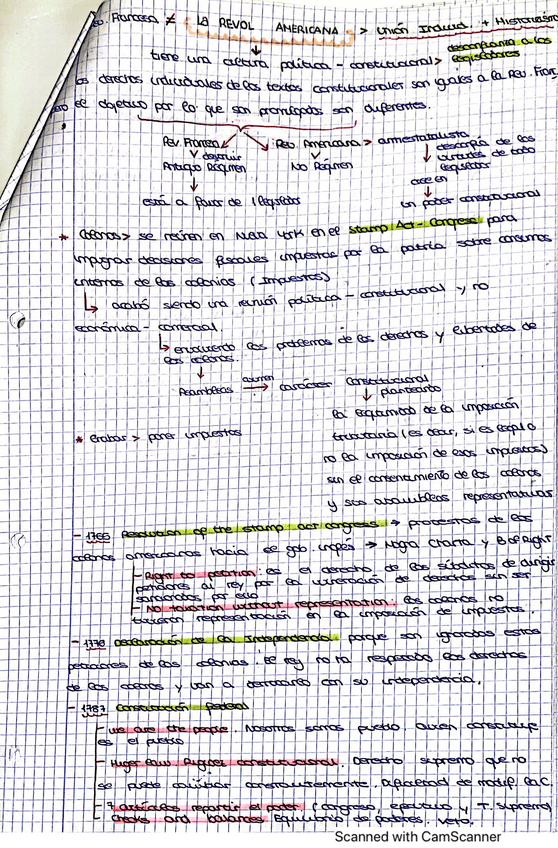 Francesa ≠ LA REVOL AMERICANA > Unión Individ. + Historicismo
desconfianza a los
legisladores
tiene una cultura política - constitucional >
los derechos individuales de los textos constitucionales son iguales a la Rev. Franc
pero el objetivo por lo que son promulgados son diferentes.
Rev. Francesa
Rev. Americana > antiestatalista
destruir
Antiguo Régimen
No Régimen
descofía de las
virtudes de todo
legislador
creen
está a favor de legislador
un poder constitucional
* Colonos > se reúnen en Nueva York en el Stamp Act - Congress para
impugnar decisiones fiscales impuestas por la patria sobre consumos
internos de las colonias (Impuestos)
acabó siendo una reunión política - constitucional y no
económica - comercial.
envolviendo los problemas de los derechos y libertades de
los colonos.
Asambleas carácter constitucional
planteando
la legalidad de la imposición
* Grabar > poner impuestos
tributaria (es decir, si es legal o
no la imposición de esos impuestos)
sin el consentimiento de los colonos
y sus asambleas representativas
- 1765 Resolution of the stamp act congress → protestas de los
colonos americanos hacia el gob. inglés → Magna Charta y B of Right
- Right to petition: es el derecho de los súbditos de dirigir
peticiones al rey por la vulneración de derechos sin ser
sancionados por ello
- No taxation without representation. los colonos no
tuvieron representación en la imposición de impuestos.
- 1776 Declaración de la Independencia porque son ignoradas estas
peticiones de las colonias. El rey no ha respetado los derechos
de los colonos y van a demandar con su independencia.
- 1787 Constitución federal
- We are the people. Nosotros somos pueblo. Quien constituye
es el pueblo
- Higer Law. Rigidez constitucional. Derecho supremo que no
se puede cambiar constantemente. Dificultad de modif. la C.
- 7 artículos repartir el poder. (congreso, ejecutivo y T. Supremo)
checks and balances. Equilibrio de poderes. Veto.
Scanned with CamScanner